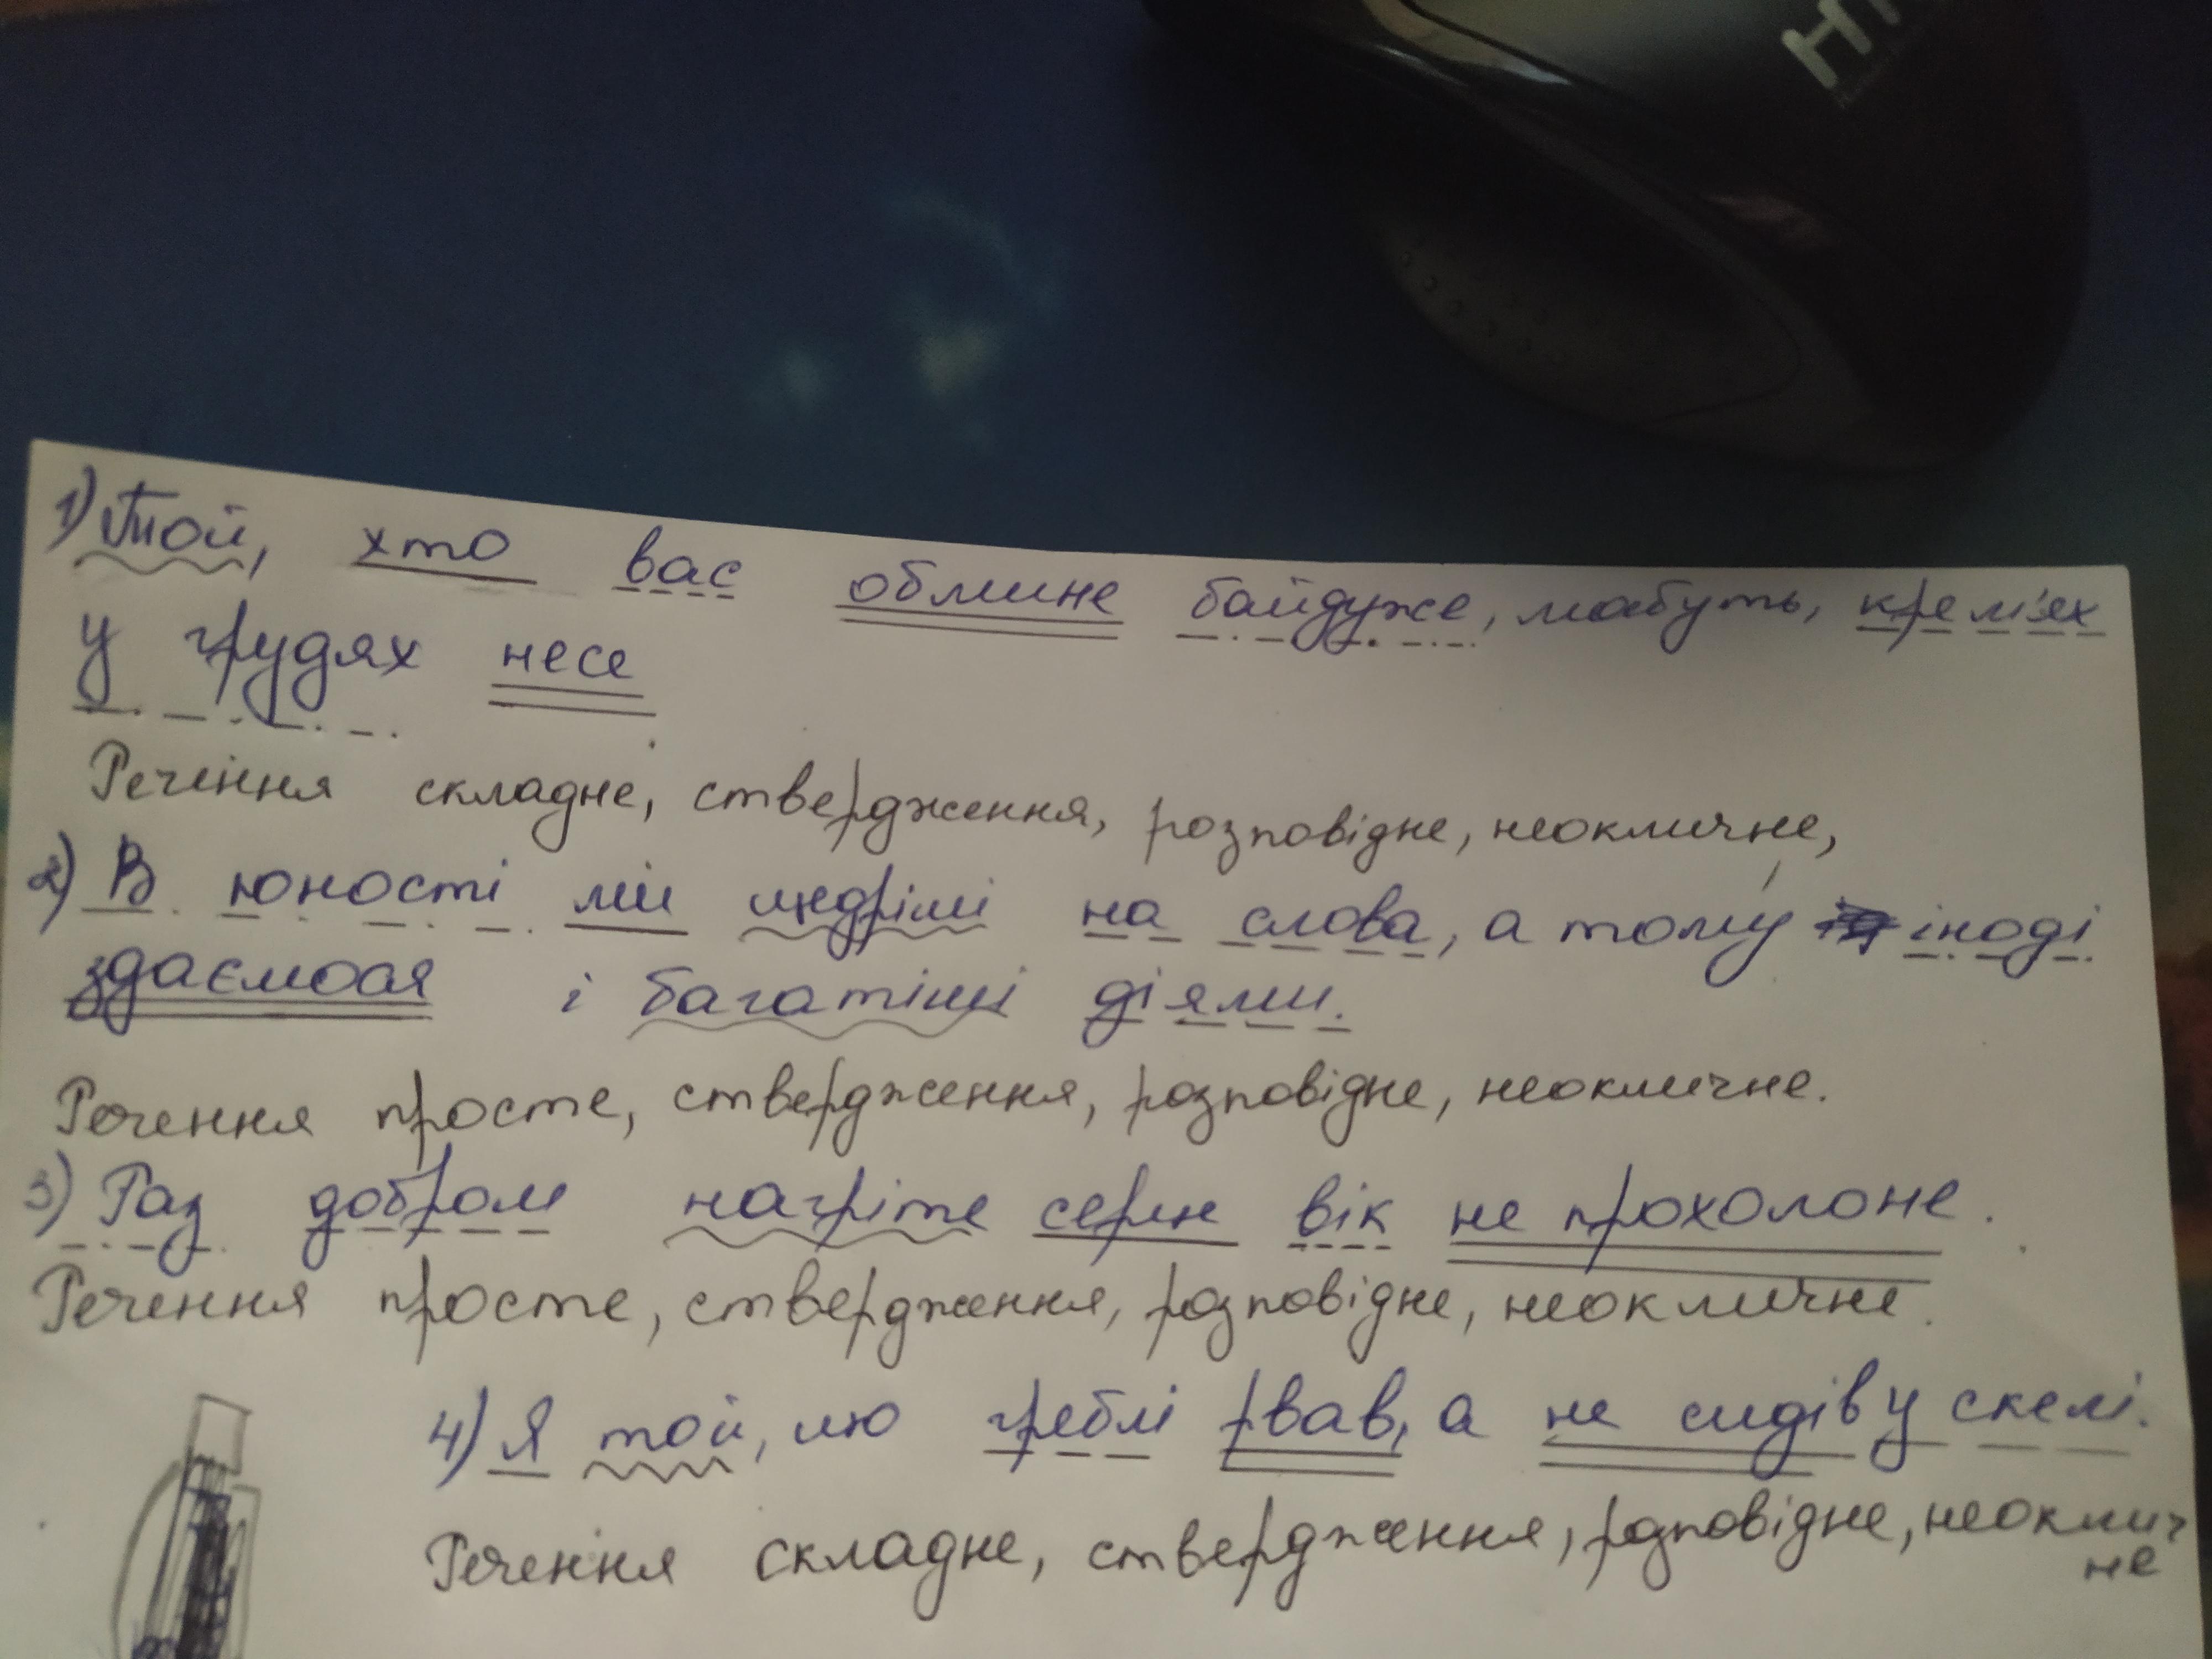 1) Той, хто вас обмине байдуже, мабуть, крем'ях
у грудях несе
Речення складне, ствердження, розповідне, неокличне,
2) В юності ми щедріші на слова, а тому іноді
здаємося і багатіші діями.
Речення просте, ствердження, розповідне, неокличне.
3) Раз добром нагріте серце вік не прохолоне.
Речення просте, ствердження, розповідне, неокличне.
4) Я той, що греблі рвав, а не сидів у скелі.
Речення складне, ствердження, розповідне, неоклич
не